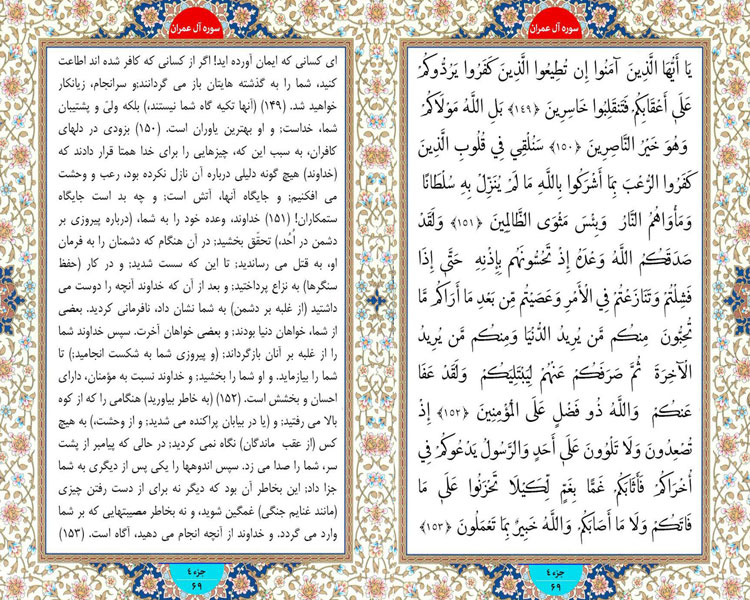 سوره آل عمران
یَا أَیُّهَا الَّذِینَ آمَنُوا إِن تُطِیعُوا الَّذِینَ کَفَرُوا یَرُدُّوکُمْ
عَلَى أَعْقَابِکُمْ فَتَنقَلِبُوا خَاسِرِینَ ﴿۱۴۹﴾ بَلِ اللَّهُ مَوْلَاکُمْ
وَهُوَ خَیْرُ النَّاصِرِینَ ﴿۱۵۰﴾ سَنُلْقِی فِی قُلُوبِ الَّذِینَ
کَفَرُوا الرُّعْبَ بِمَا أَشْرَکُوا بِاللَّهِ مَا لَمْ یُنَزِّلْ بِهِ سُلْطَانًا
وَمَأْوَاهُمُ النَّارُ وَبِئْسَ مَثْوَى الظَّالِمِینَ ﴿۱۵۱﴾ وَلَقَدْ
صَدَقَکُمُ اللَّهُ وَعْدَهُ إِذْ تَحُسُّونَهُم بِإِذْنِهِ حَتَّى إِذَا
فَشِلْتُمْ وَتَنَازَعْتُمْ فِی الْأَمْرِ وَعَصَیْتُم مِّن بَعْدِ مَا أَرَاکُم مَّا
تُحِبُّونَ مِنکُم مَّن یُرِیدُ الدُّنْیَا وَمِنکُم مَّن یُرِیدُ
الْآخِرَةَ ثُمَّ صَرَفَکُمْ عَنْهُمْ لِیَبْتَلِیَکُمْ وَلَقَدْ عَفَا
عَنکُمْ وَاللَّهُ ذُو فَضْلٍ عَلَى الْمُؤْمِنِینَ ﴿۱۵۲﴾ إِذْ
تُصْعِدُونَ وَلَا تَلْوُونَ عَلَى أَحَدٍ وَالرَّسُولُ یَدْعُوکُمْ فِی
أُخْرَاکُمْ فَأَثَابَکُمْ غَمًّا بِغَمٍّ لِّکَیْلَا تَحْزَنُوا عَلَى مَا
فَاتَکُمْ وَلَا مَا أَصَابَکُمْ وَاللَّهُ خَبِیرٌ بِمَا تَعْمَلُونَ ﴿۱۵۳﴾
جزء ٤
۶۹
سوره آل عمران
ای کسانی که ایمان آورده اید! اگر از کسانی که کافر شده اند اطاعت
کنید، شما را به گذشته هایتان باز می گردانند;و سرانجام، زیانکار
خواهید شد. (۱۴۹) (آنها تکیه گاه شما نیستند،) بلکه ولیّ و پشتیبان
شما، خداست; و او بهترین یاوران است. (۱۵۰) بزودی در دلهای
کافران، به سبب این که، چیزهایی را برای خدا همتا قرار دادند که
(خداوند) هیچ گونه دلیلی درباره آن نازل نکرده بود، رعب و وحشت
می افکنیم; و جایگاه آنها، آتش است; و چه بد است جایگاه
ستمکاران! (۱۵۱) خداوند، وعده خود را به شما، (درباره پیروزی بر
دشمن در اُحد،) تحقّق بخشید; در آن هنگام که دشمنان را به فرمان
او، به قتل می رساندید; تا این که سست شدید; و در کار (حفظ
سنگرها) به نزاع پرداختید; و بعد از آن که خداوند آنچه را دوست می
داشتید (از غلبه بر دشمن) به شما نشان داد، نافرمانی کردید. بعضی
از شما، خواهان دنیا بودند; و بعضی خواهان آخرت. سپس خداوند شما
را از غلبه بر آنان بازگرداند; (و پیروزی شما به شکست انجامید;) تا
شما را بیازماید. و او شما را بخشید; و خداوند نسبت به مؤمنان، دارای
احسان و بخشش است. (۱۵۲) (به خاطر بیاورید) هنگامی را که از کوه
بالا می رفتید; و (یا در بیابان پراکنده می شدید; و از وحشت،) به هیچ
کس (از عقب ماندگان) نگاه نمی کردید; در حالی که پیامبر از پشت
سر، شما را صدا می زد. سپس اندوهها را یکی پس از دیگری به شما
جزا داد; این بخاطر آن بود که دیگر نه برای از دست رفتن چیزی
(مانند غنایم جنگی) غمگین شوید، و نه بخاطر مصیبتهایی که بر شما
وارد می گردد. و خداوند از آنچه انجام می دهید، آگاه است. (۱۵۳)
جزء ٤
۶۹